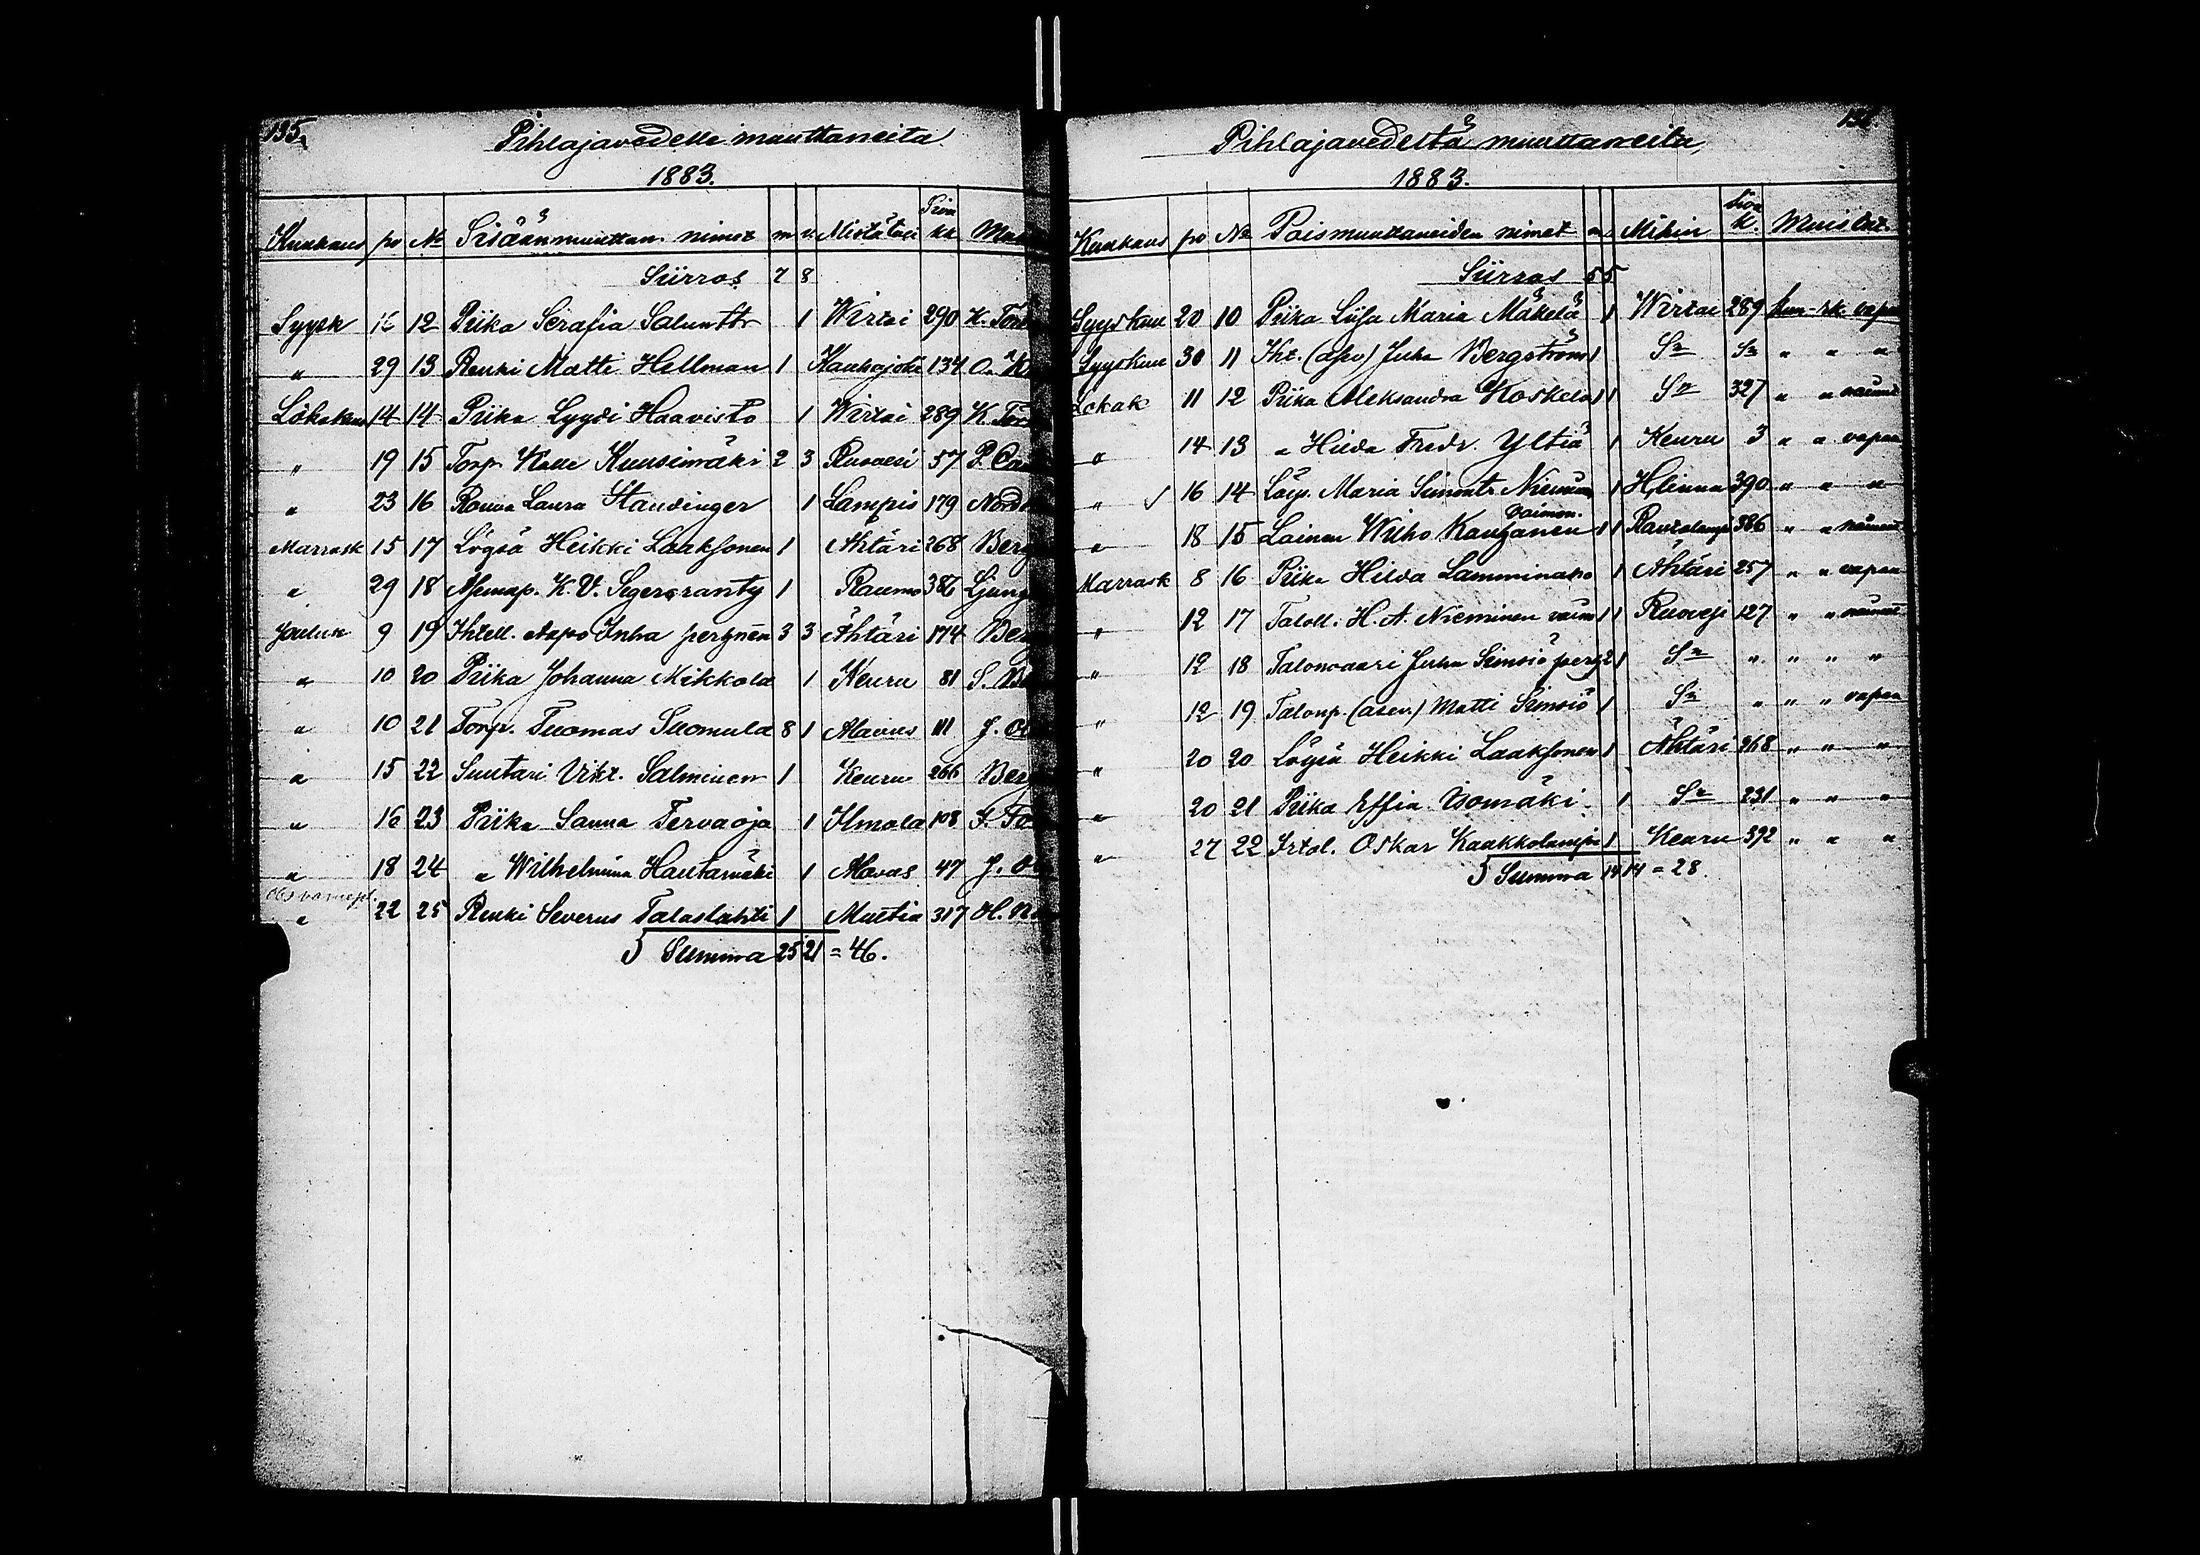 135.
Pihlajavedelle muuttaneita
1883.
Kuukaus pv № Sisäänmuuttan. nimet m v. Mistä tuli Sivu kk
Siirros 7 8
Syysk 16 12 Piika Serafia 1 Wirtai 290
" 29 13 Renki Matti Hellman 1 Kauhajoki 134
Lokakuu 14 14 Piika Lyydi Haavisto 1 Wirtai 289
" 19 15 Torp. Kalle Kuusimäki 2 3 Ruovesi 57
" 23 16 Rouva Laura Standinger 1 Lampis 179
Marrask 15 17 Löysä Heikki Laaksonen 1 Ähtäri 268
" 29 18 K. V. 1 Rauma 386
Jouluk 9 19 Ihtell. Aapo Inha perhnen 3 3 Ähtäri 174
" 10 20 Piika Johanna Mikkola 1 Keuru 81
" 10 21 Torp. Tuomas Suomula 8 1 Alavus 111
" 15 22 Suutari Vikt. Salminen 1 Keuru 266
" 16 23 Piika Sanna Tervaoja 1 Ilmola 108
" 18 24 " Wilhelmiina Hautamäki 1 Alavus 47
" 22 25 Renki Severus Talaslahti 1 Multia 317
Summa 25 21 = 46.
Pihlajavedeltä muuttaneita,
1883.
Kuukaus pv № Poismuuttaneiden nimet m Mihin Sivu k. Muistut.
Siirros 5 5
Syyskuu 20 10 Piika Liisa Maria Mäkelä 1 Wirtai 289 vapaa
Syyskuu 30 11 Juha Bergström 1 Sn Sn " " "
Lokak 11 12 Piika Aleksandra Koskela 1 1 Sn 327 " "
" 14 13 " Hilda Fredr. Yltiä 1 Keuru 3 " " vapaa
" 16 14 Löys. Maria Simontr 1 H,linna 390 " " "
" 18 15 Lainan Wilho Kauhanen vaimon. 1 1 Rautalampi 386 " "
Marrask 8 16 Piika Hilda 1 Ähtäri 257 " " vapaa
" 12 17 Taloll. H. A. Nieminen vaim 1 1 Ruovesi 127 " "
" 12 18 Talonvaari Juha Simsiö perh 2 1 Sn " " " "
" 12 19 Talonp. (asev.) Matti Simsiö 1 Sn " " " vapaa
" 20 20 Löysä Heikki Laaksonen 1 Ähtäri 268 " " "
" 20 21 Piika Effia Isomäki 1 Sn 231 " " "
" 27 22 Irtol. Oskar Kaakkolampi 1 Keuru 392 " " "
Summa 14 14 = 28.